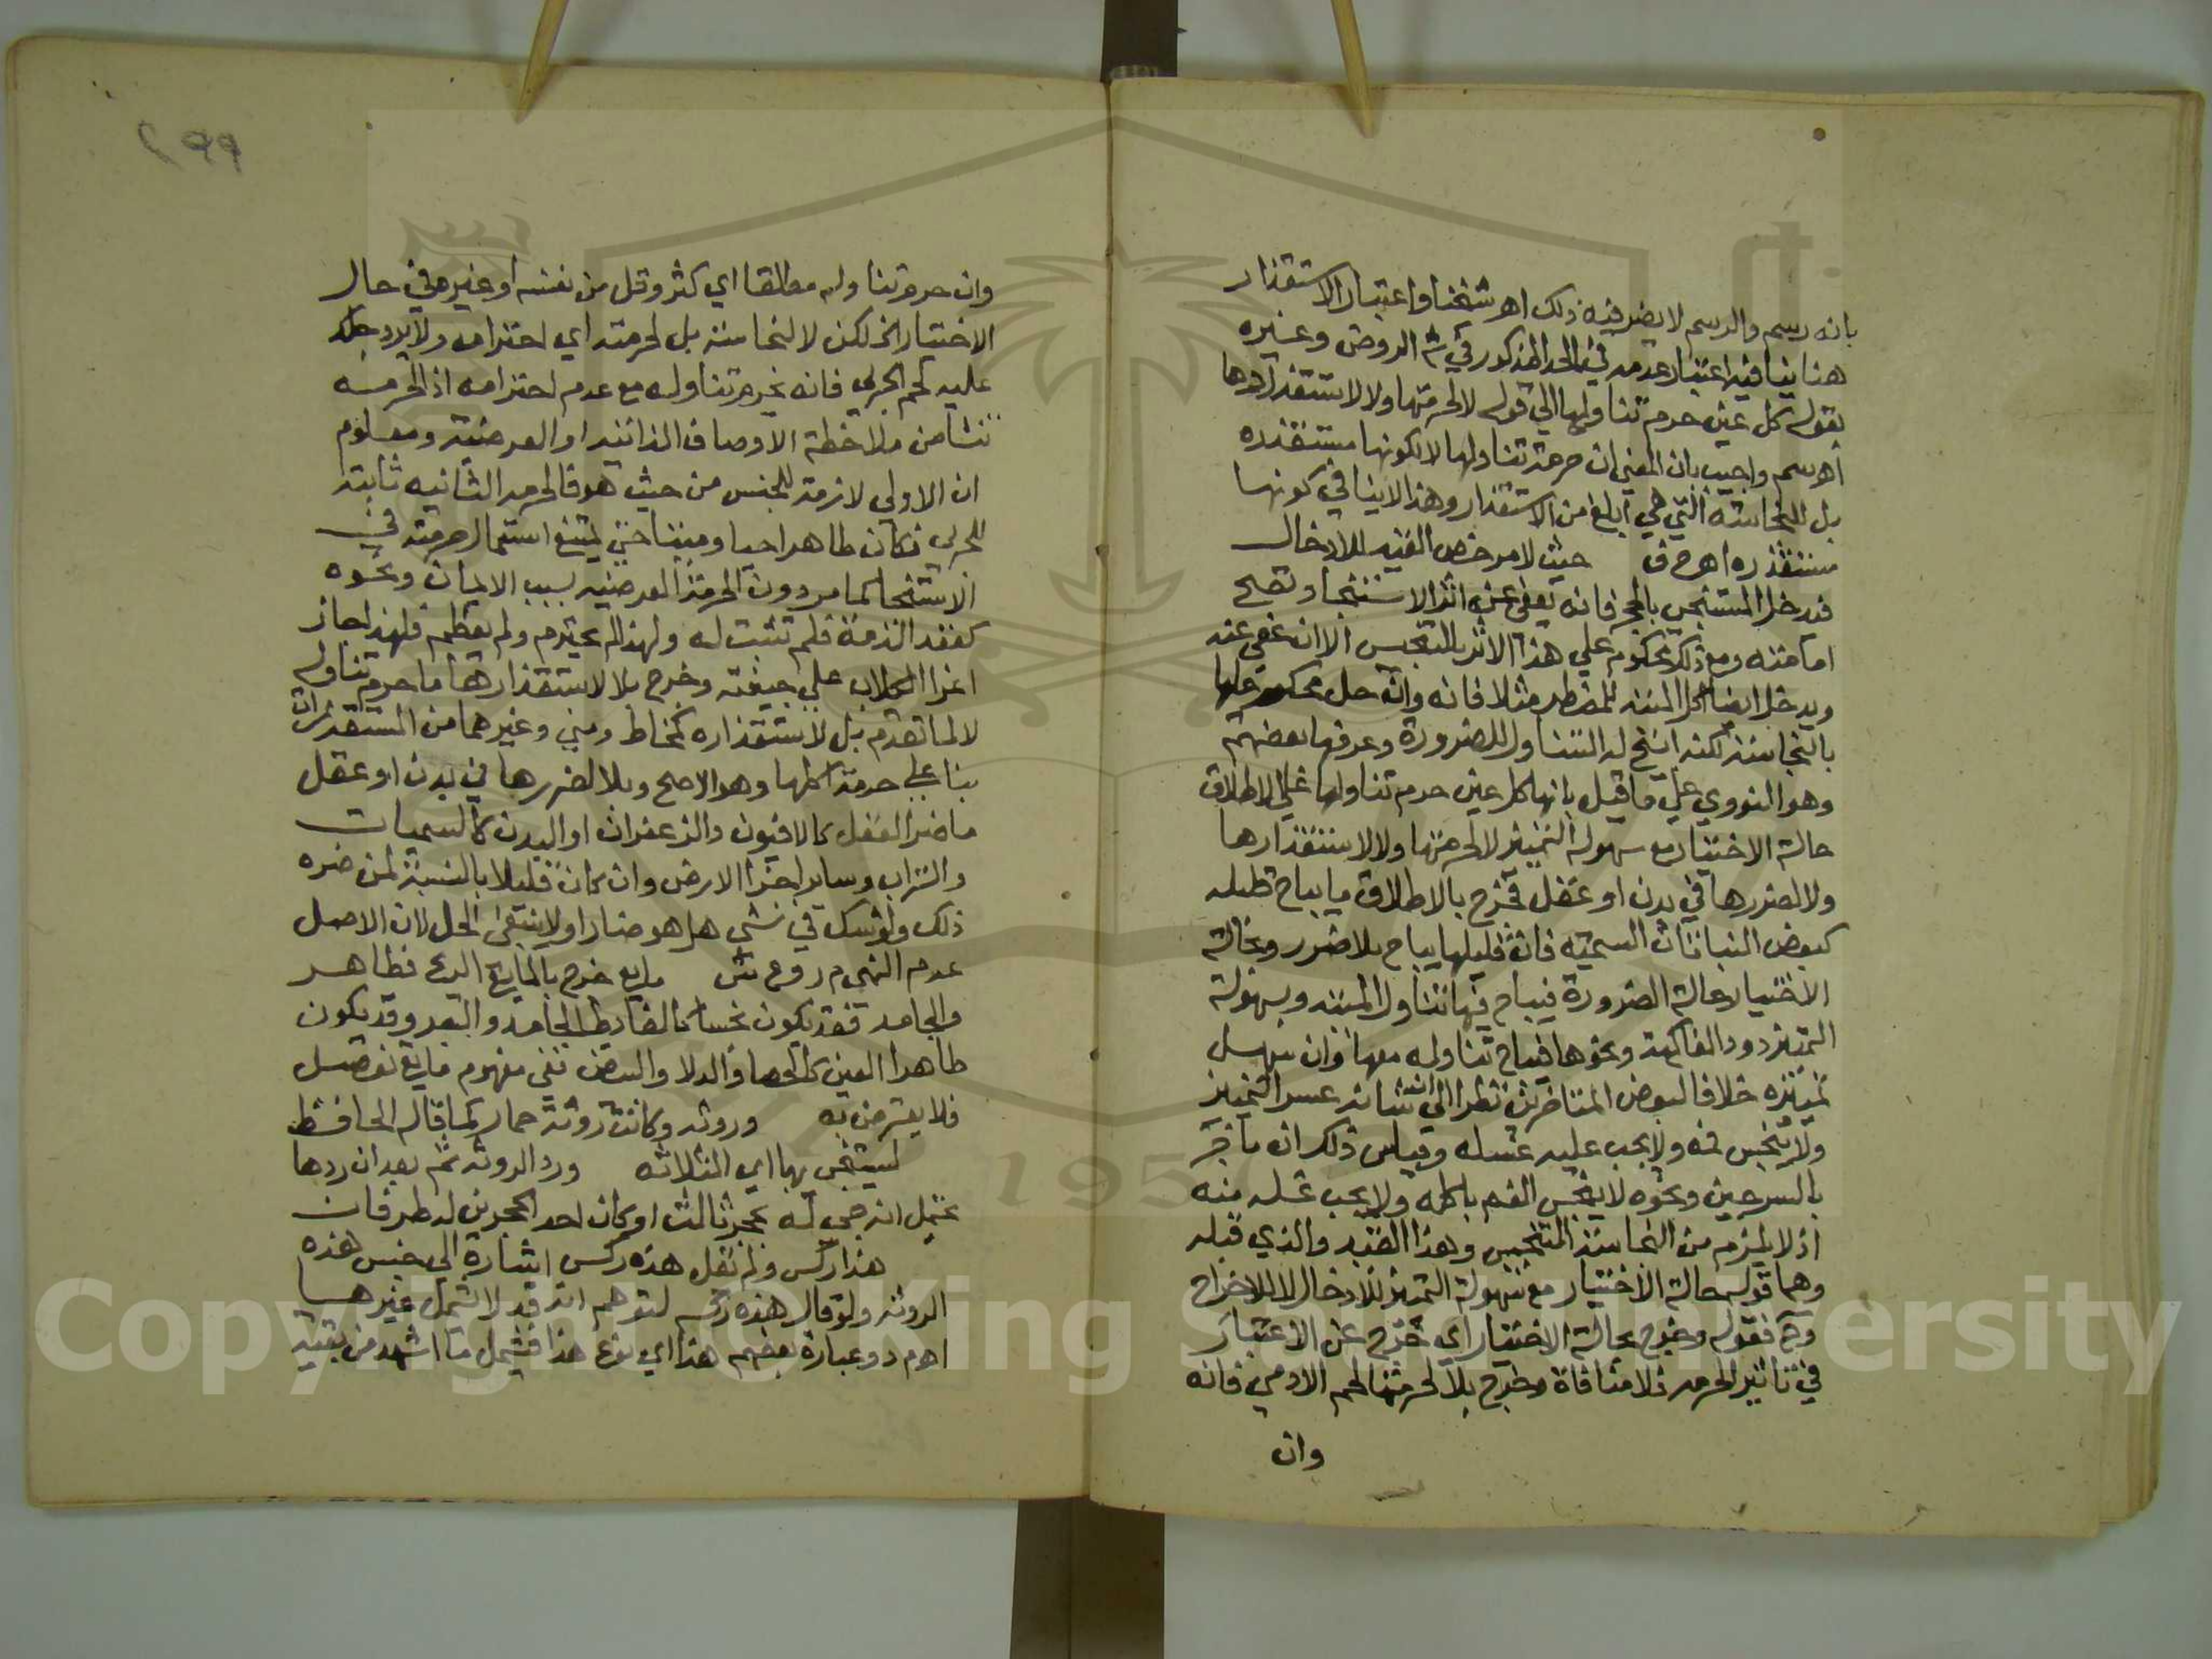 بانه رسم والرسم لا يضر فيه ذلك اهر شيخنا واعتبار الاستقذار
هنا ينافيه اعتبار عدمه في الحد المذكور في شر الروض وغيره
بقوله كل عين حرم تناولها الي قوله لا لحرمتها ولا لاستقذارها
اهرسم واجيب بان المعني ان حرمة تناولها لا لكونها مستقذره
بل للنجاسة التي هي ابلغ من الاستقذار وهذا لا ينافي كونها
مستقذره اهر ح ف حيث لا مرخص القيد للادخال
فدخل المستنجي بالحجر فانه يعفي عن اثر الاستنجا وتصح
امامته ومع ذلك محكوم علي هذا الاثر بالتنجس الا انه عفي عنه
ويدخل ايضا اكل الميتة للمضطر مثلا فانه وان حل محكوم عليها
بالنجاسة لكنه ابيح له التناول للضرورة وعرفها بعضهم
وهو النووي علي ما قيل بانها كل عين حرم تناولها علي الاطلاق
حالة الاختيار مع سهولة التمييز لا لحرمتها ولا لاستقذارها
ولا لضررها في بدن او عقل فخرج بالاطلاق ما يباح قليله
كبعض النباتات السمية فان قليلها يباح بلا ضرر وبحالة
الاختيار حالة الضرورة فيباح فيها تناول الميتة وبسهولة
التمييز دود الفاكهة ونحوها فيباح تناوله معها وان سهل
تمييزه خلافا لبعض المتاخرين نظرا الي ان شانه عسر التمييز
ولا ينجس فمه ولا يجب عليه غسله وقياس ذلك ان ما خبز
بالسرجين ونحوه لا ينجس الفم باكله ولا يجب غسله منه
اذ لا يلزم من النجاسة التنجيس وهذا القيد والذي قبله
وهما قوله حالة الاختيار مع سهولة التمييز للادخال لا للاخراج
وح فقوله وخرج بحالة الاختيار اي خرج عن الاعتبار
في تاثير الحرمة فلا منافاة وخرج بلا لحرمتها لحم الادمي فانه
وان
٢٩٩
وان حرم تناوله مطلقا اي كثر وقل من نفسه او غيره في حال
الاختيار الخ لكن لا لنجاسته بل لحرمته اي احترامه ولا يرد
عليه لحم الحربي فانه يحرم تناوله مع عدم احترامه اذ الحرمة
تنشا من ملاحظة الاوصاف الذاتية او العرضية ومعلوم
ان الاولي لازمة للجنس من حيث هو فالحرمة الثانيه ثابتة
للحربي فكان طاهرا حيا وميتا حتي يمتنع استعمال حرمته في
الاستنجا كما مر دون الحرمة العرضيه بسبب الايمان ونحوه
كعقد الذمة فلم تثبت له ولهذا لم يحترم ولم يعظم فلهذا جاز
اغرا الكلاب علي جيفته وخرج بلا لاستقذارها ما حرم تناوله
لا لما تقدم بل لاستقذاره كمخاط ومني وغيرهما من المستقذرات
بنا علي حرمة اكلها وهو الاصح وبلا لضررها في بدن او عقل
ما ضر العقل كالافيون والزعفران او البدن كالسميات
والتراب وساير اجزا الارض وان كان قليلا بالنسبة لمن ضره
ذلك ولو شك في شي هل هو ضار او لا ينبغي الحل لان الاصل
عدم النهي م ر و ع ش مايع خرج بالمايع الدم فطاهر
والجامد فقد يكون نجسا كالغايط الجامد والبعر وقد يكون
طاهر العين كالحصا والدلا والبيض ففي مفهوم مايع تفصيل
فلا يعترض به وروثه وكانت روثة حمار كما قاله الحافظ
ليستنجي بها اي الثلاثه ورد الروثه ثم بعد ان ردها
يحتمل انه جي له بحجر ثالث او كان احد الحجرين له طرفان
هذا ركس ولم يقل هذه ركس اشارة الي جنس هذه
الروثه ولو قال هذه ركس لتوهم انه قد لا تشمل غيرها
اهر م د وعبارة بعضهم هذا اي نوع هذا فيشمل ما اشهد من بقية